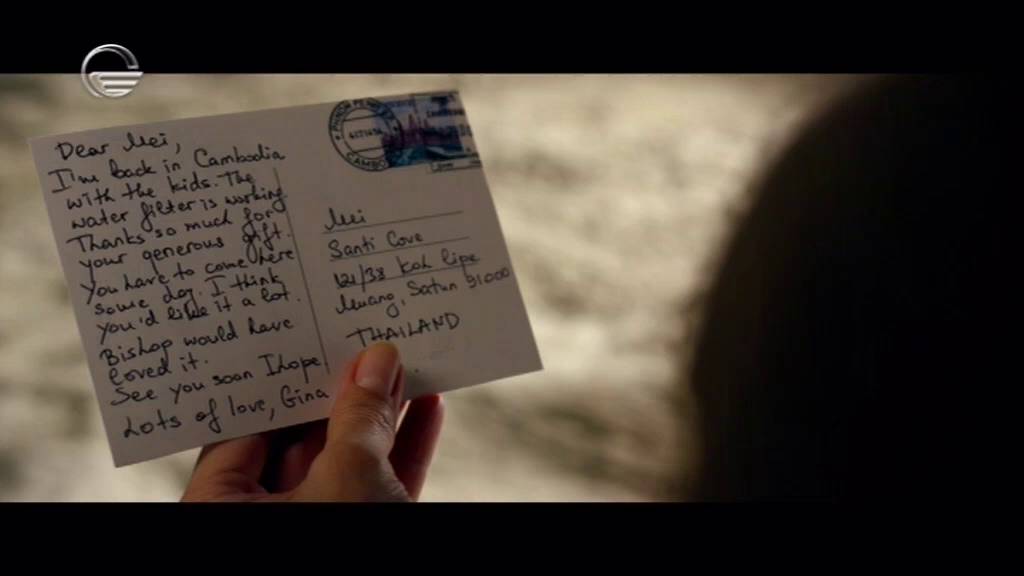 Dear Mei,
I'm back in Cambodia
with the kids. The
water filter is working
Thanks so much for
your generous gift.
You have to come here
some day. I think
you'd like it a lot.
Bishop would have
loved it.
See you soon I hope
Lots of love, Gina
PHNOM PENH
CAMBO
Mei
Santi Cove
121/38 Koh Lipe
Muang, Satun 91000
THAILAND